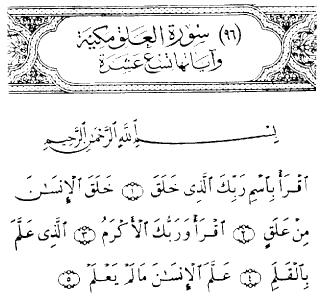 (٩٦) سورة العلق مكية
وآياتها تسع عشرة
بِسْمِ اللَّهِ الرَّحْمَٰنِ الرَّحِيمِ
ٱقْرَأْ بِٱسْمِ رَبِّكَ ٱلَّذِى خَلَقَ ١ خَلَقَ ٱلْإِنسَٰنَ
مِنْ عَلَقٍ ٢ ٱقْرَأْ وَرَبُّكَ ٱلْأَكْرَمُ ٣ ٱلَّذِى عَلَّمَ
بِٱلْقَلَمِ ٤ عَلَّمَ ٱلْإِنسَٰنَ مَا لَمْ يَعْلَمْ ٥